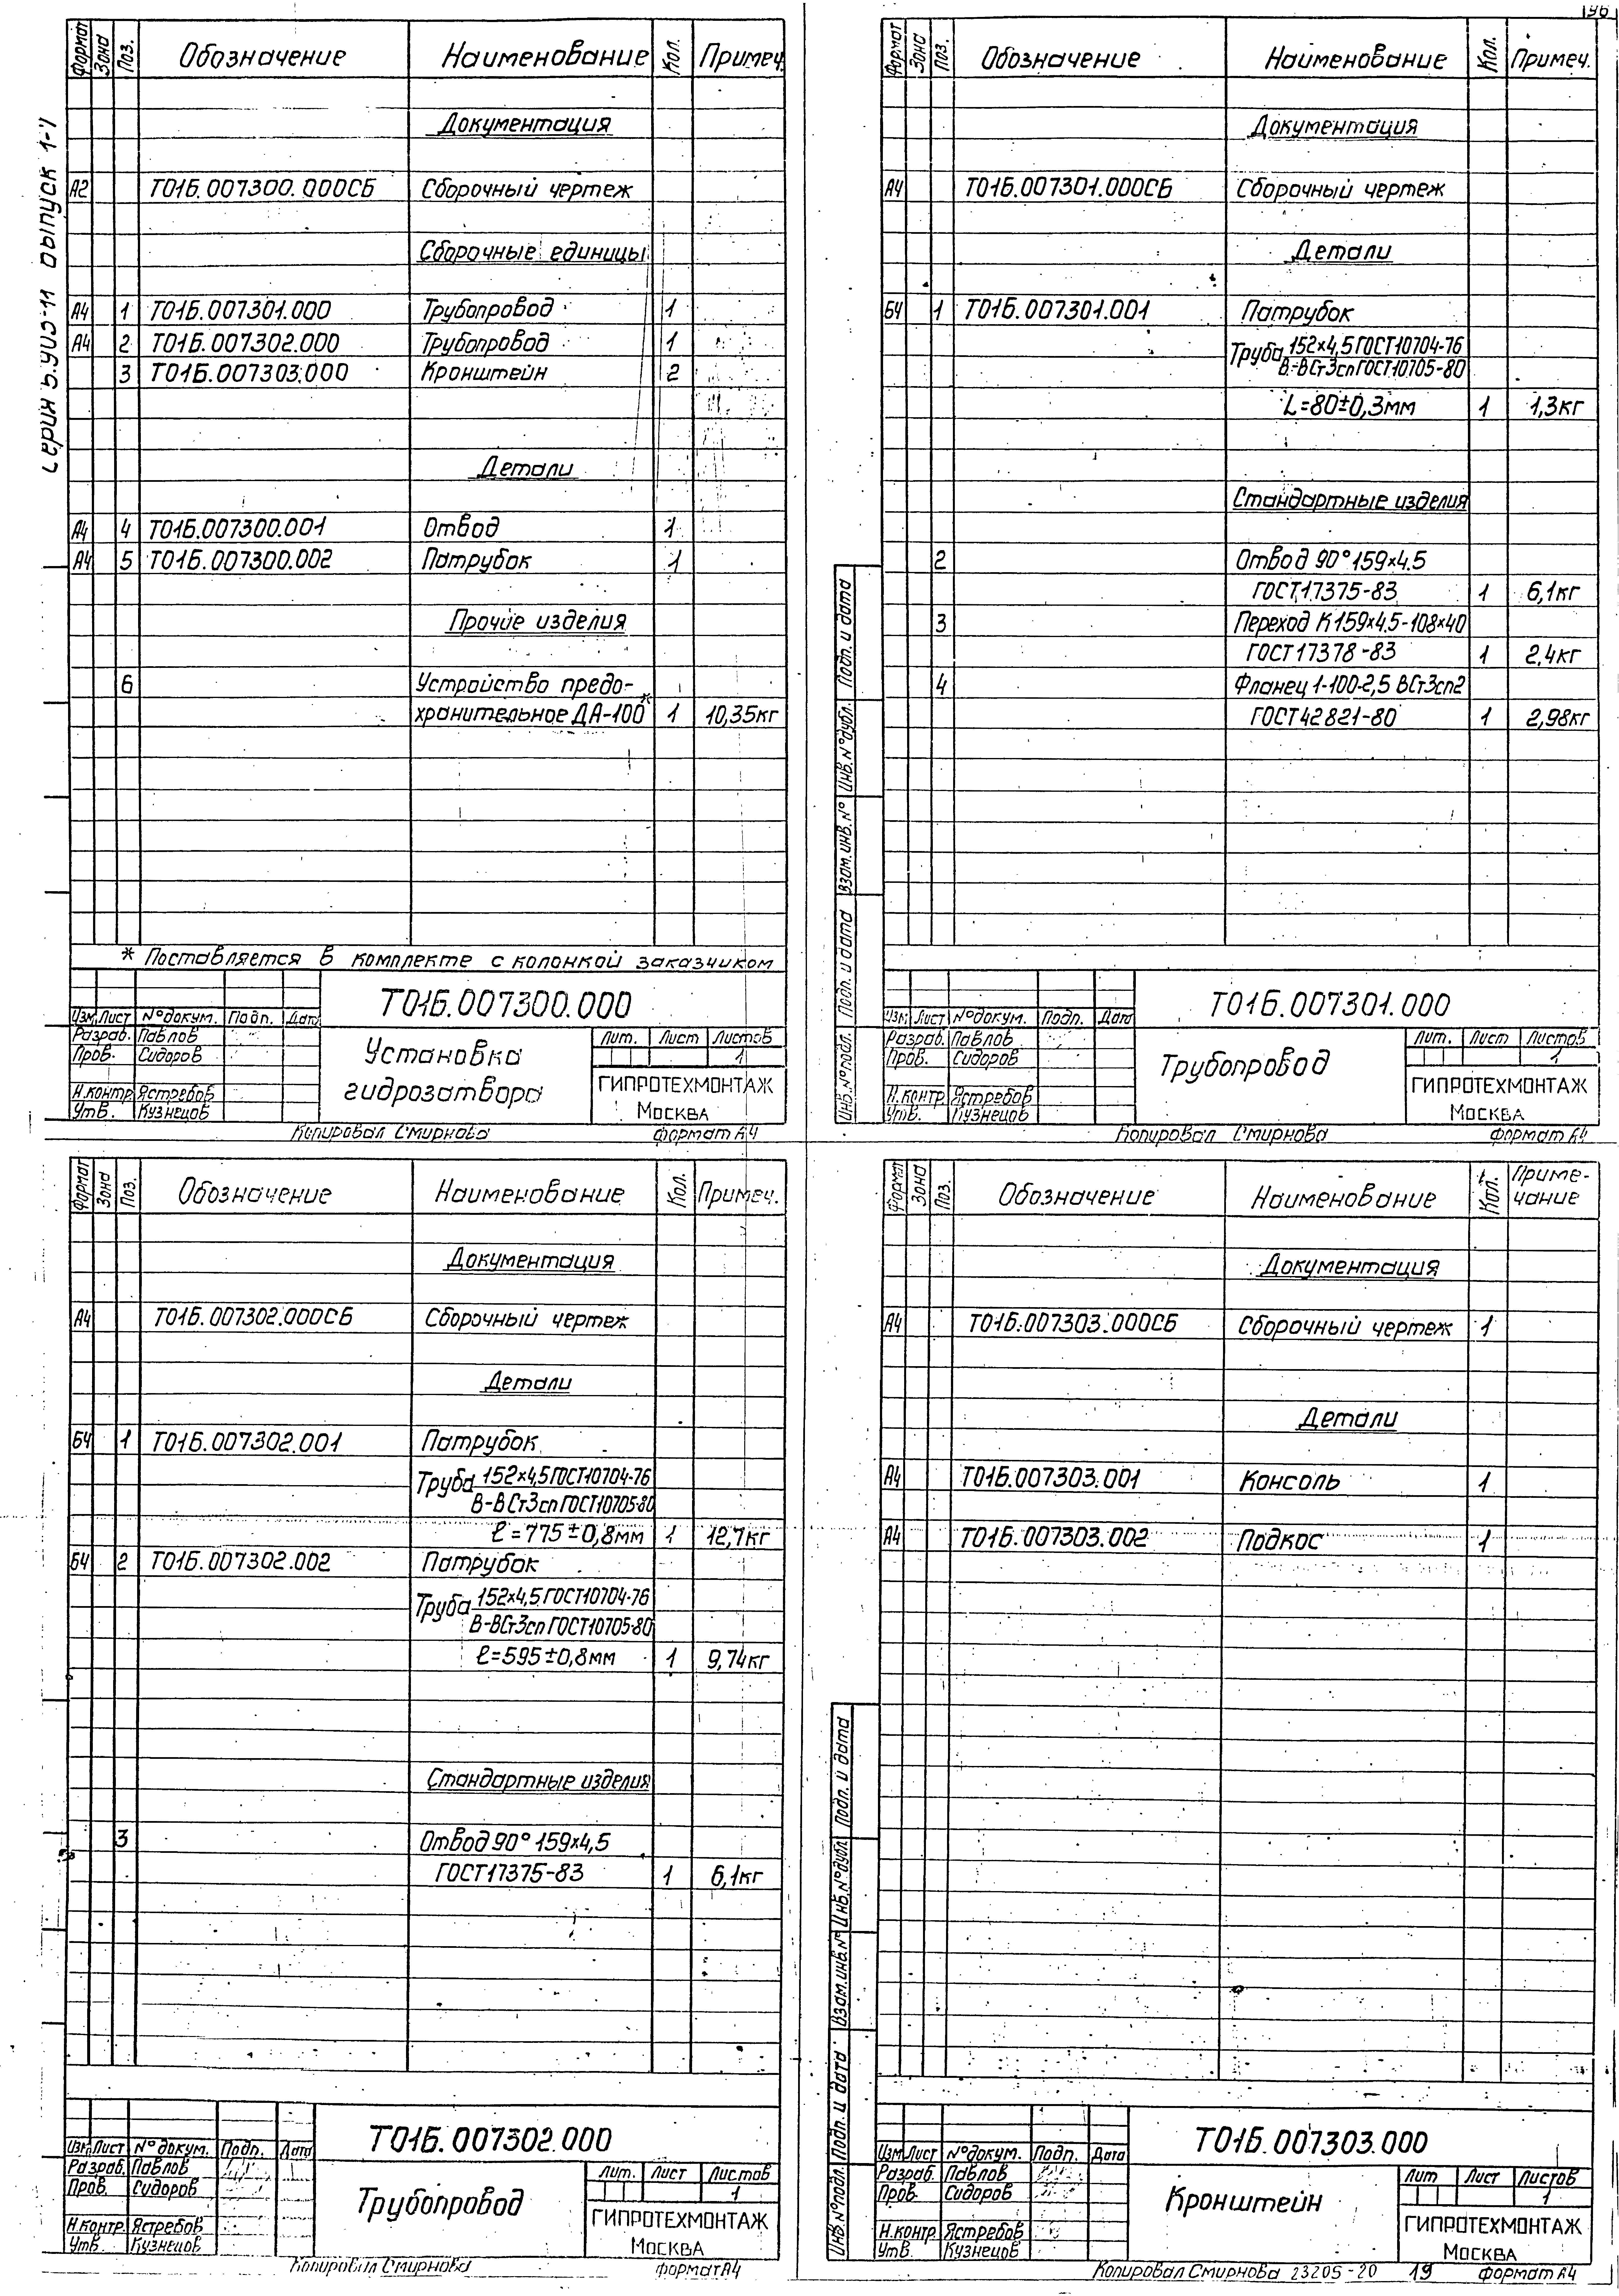 196
серия 5.905-14 выпуск 1-1
Формат Зона Поз. Обозначение Наименование Кол. Примеч.
Документация
А2 Т01Б.007300.000СБ Сборочный чертеж
Сборочные единицы
А4 1 Т01Б.007301.000 Трубопровод 1
А4 2 Т01Б.007302.000 Трубопровод 1
3 Т01Б.007303.000 Кронштейн 2
Детали
А4 4 Т01Б.007300.001 Отвод 1
А4 5 Т01Б.007300.002 Патрубок 1
Прочие изделия
6 Устройство предо-
хранительное ДА-100* 1 10,35кг
* Поставляется в комплекте с колонкой заказчиком
Т01Б.007300.000
Изм. Лист №докум. Подп. Дата
Разраб. Павлов
Пров. Сидоров
Н.контр. Ястребов
Утв. Кузнецов
Установка
гидрозатвора
Лит. Лист Листов
1
ГИПРОТЕХМОНТАЖ
Москва
Копировал Смирнова формат А4
Формат Зона Поз. Обозначение Наименование Кол. Примеч.
Документация
А4 Т01Б.007301.000СБ Сборочный чертеж
Детали
Б4 1 Т01Б.007301.001 Патрубок
Труба 152×4,5 ГОСТ10704-76
В-ВСт3сп ГОСТ10705-80
L=80±0,3мм 1 1,3кг
Стандартные изделия
2 Отвод 90° 159×4.5
ГОСТ17375-83 1 6,1кг
3 Переход К159×4.5-108×40
ГОСТ17378-83 1 2,4кг
4 Фланец 1-100-2,5 ВСт3сп2
ГОСТ42821-80 1 2,98кг
Подп. и дата
Инв.№дубл.
Взам.инв.№
Подп. и дата
Инв.№подл.
Т01Б.007301.000
Изм. Лист №докум. Подп. Дата
Разраб. Павлов
Пров. Сидоров
Н.контр. Ястребов
Утв. Кузнецов
Трубопровод
Лит. Лист Листов
1
ГИПРОТЕХМОНТАЖ
Москва
Копировал Смирнова формат А4
Формат Зона Поз. Обозначение Наименование Кол. Примеч.
Документация
А4 Т01Б.007302.000СБ Сборочный чертеж
Детали
Б4 1 Т01Б.007302.001 Патрубок
Труба 152×4,5 ГОСТ10704-76
В-ВСт3сп ГОСТ10705-80
ℓ=775±0,8мм 1 12,7кг
Б4 2 Т01Б.007302.002 Патрубок
Труба 152×4,5 ГОСТ10704-76
В-ВСт3сп ГОСТ10705-80
ℓ=595±0,8мм 1 9,74кг
Стандартные изделия
3 Отвод 90° 159×4,5
ГОСТ17375-83 1 6,1кг
Т01Б.007302.000
Изм. Лист №докум. Подп. Дата
Разраб. Павлов
Пров. Сидоров
Н.контр. Ястребов
Утв. Кузнецов
Трубопровод
Лит. Лист Листов
1
ГИПРОТЕХМОНТАЖ
Москва
Копировал Смирнова формат А4
Формат Зона Поз. Обозначение Наименование Кол. Приме-
чание
Документация
А4 Т01Б.007303.000СБ Сборочный чертеж 1
Детали
А4 Т01Б.007303.001 Консоль 1
А4 Т01Б.007303.002 Подкос 1
Подп. и дата
Инв.№дубл.
Взам.инв.№
Подп. и дата
Инв.№подл.
Т01Б.007303.000
Изм. Лист №докум. Подп. Дата
Разраб. Павлов
Пров. Сидоров
Н.контр. Ястребов
Утв. Кузнецов
Кронштейн
Лит Лист Листов
1
ГИПРОТЕХМОНТАЖ
Москва
Копировал Смирнова 23205-20 19 формат А4